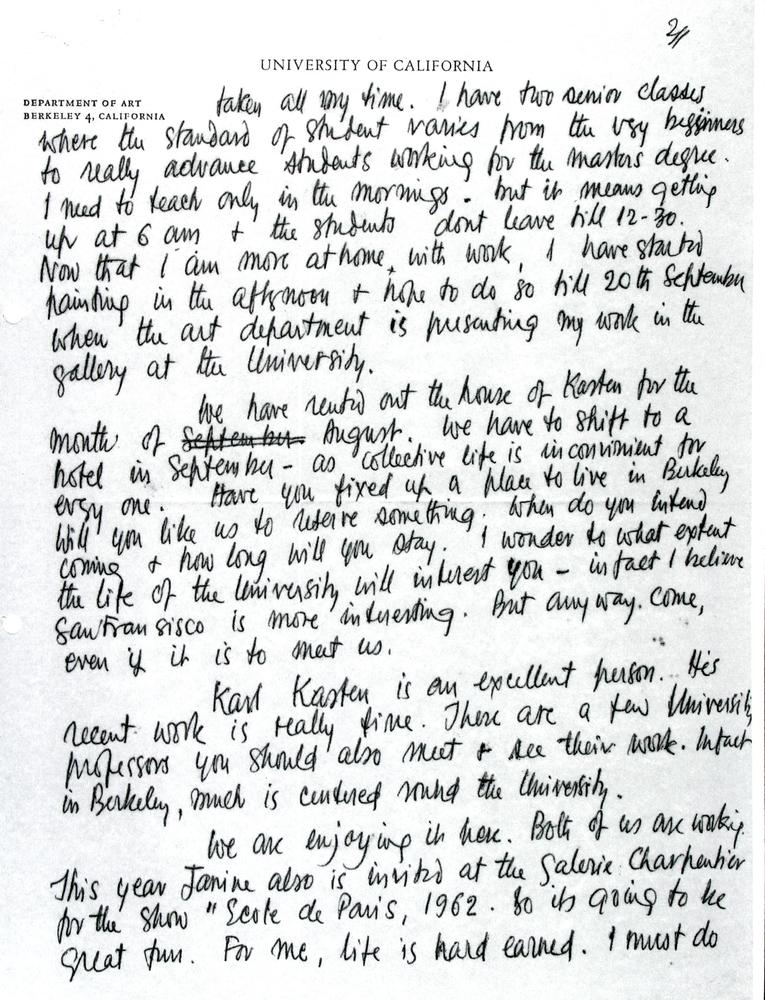 2/
UNIVERSITY OF CALIFORNIA
DEPARTMENT OF ART
BERKELEY 4, CALIFORNIA
taken all my time. I have two senior classes
where the standard of student varies from the very beginners
to really advance students working for the masters degree.
I need to teach only in the mornings. but it means getting
up at 6 am + the students dont leave till 12-30.
Now that I am more at home, with work, I have started
painting in the afternoon + hope to do so till 20th September
when the art department is presenting my work in the
gallery at the University.
We have rented out the house of Kasten for the
month of September August. We have to shift to a
hotel in September - as collective life is inconvinient for
every one. Have you fixed up a place to live in Berkeley
Will you like us to reserve something. When do you intend
coming + how long will you stay. I wonder to what extent
the life of the University will interest you - infact I believe
SanFransisco is more interesting. But anyway. Come,
even if it is to meet us.
Karl Kasten is an excellent person. His
recent work is really fine. There are a few University
professors you should also meet + see their work. Infact
in Berkeley, much is centered round the University.
We are enjoying it here. Both of us are working.
This year Janine also is invited at the Galerie Charpentier
for the show "Ecole de Paris, 1962. So its going to be
great fun. For me, life is hard earned. I must do